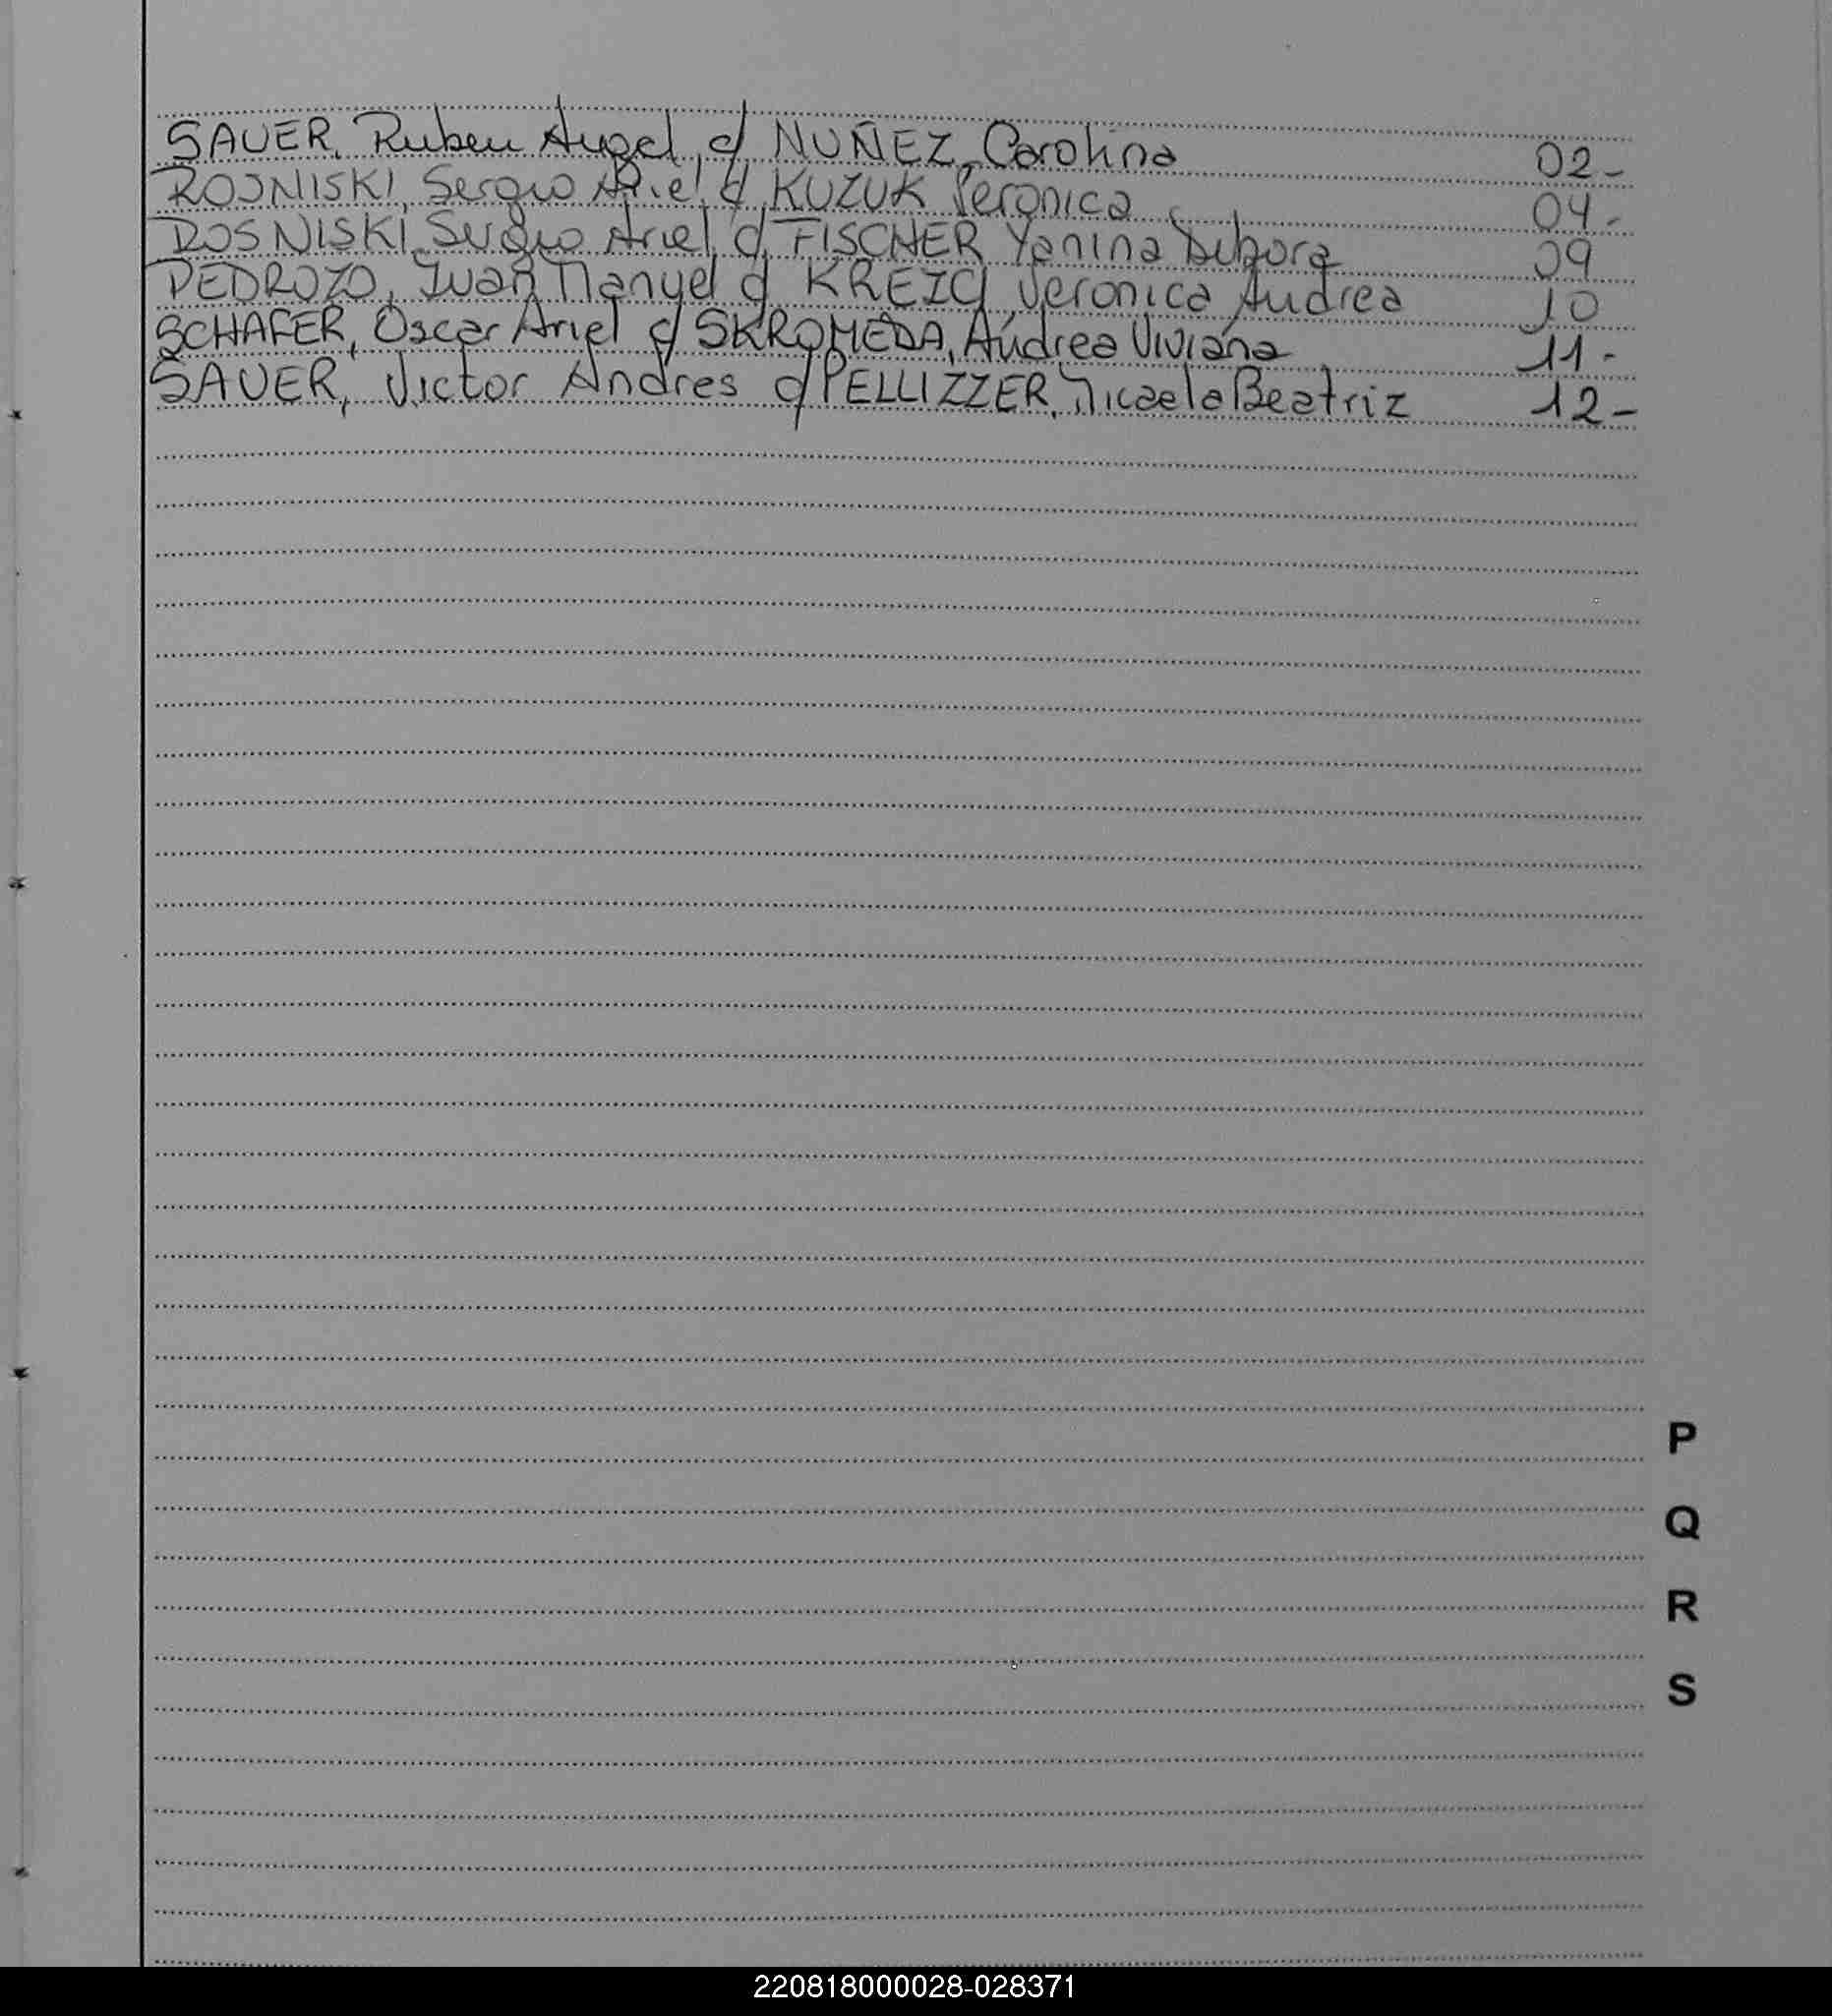 SAUER, Ruben Angel c/ NUÑEZ, Carolina 02-
ROSNISKI, Sergio Ariel c/ KUZUK Veronica 04-
ROSNISKI, Sergio Ariel c/ FISCHER Yanina Debora 09
PEDROZO, Ivan Manuel c/ KREICI, Veronica Andrea 10
SCHAFER, Oscar Ariel c/ SKROMEDA, Andrea Viviana 11-
SAUER, Victor Andres c/ PELLIZZER, Micaela Beatriz 12-
P
Q
R
S
220818000028-028371